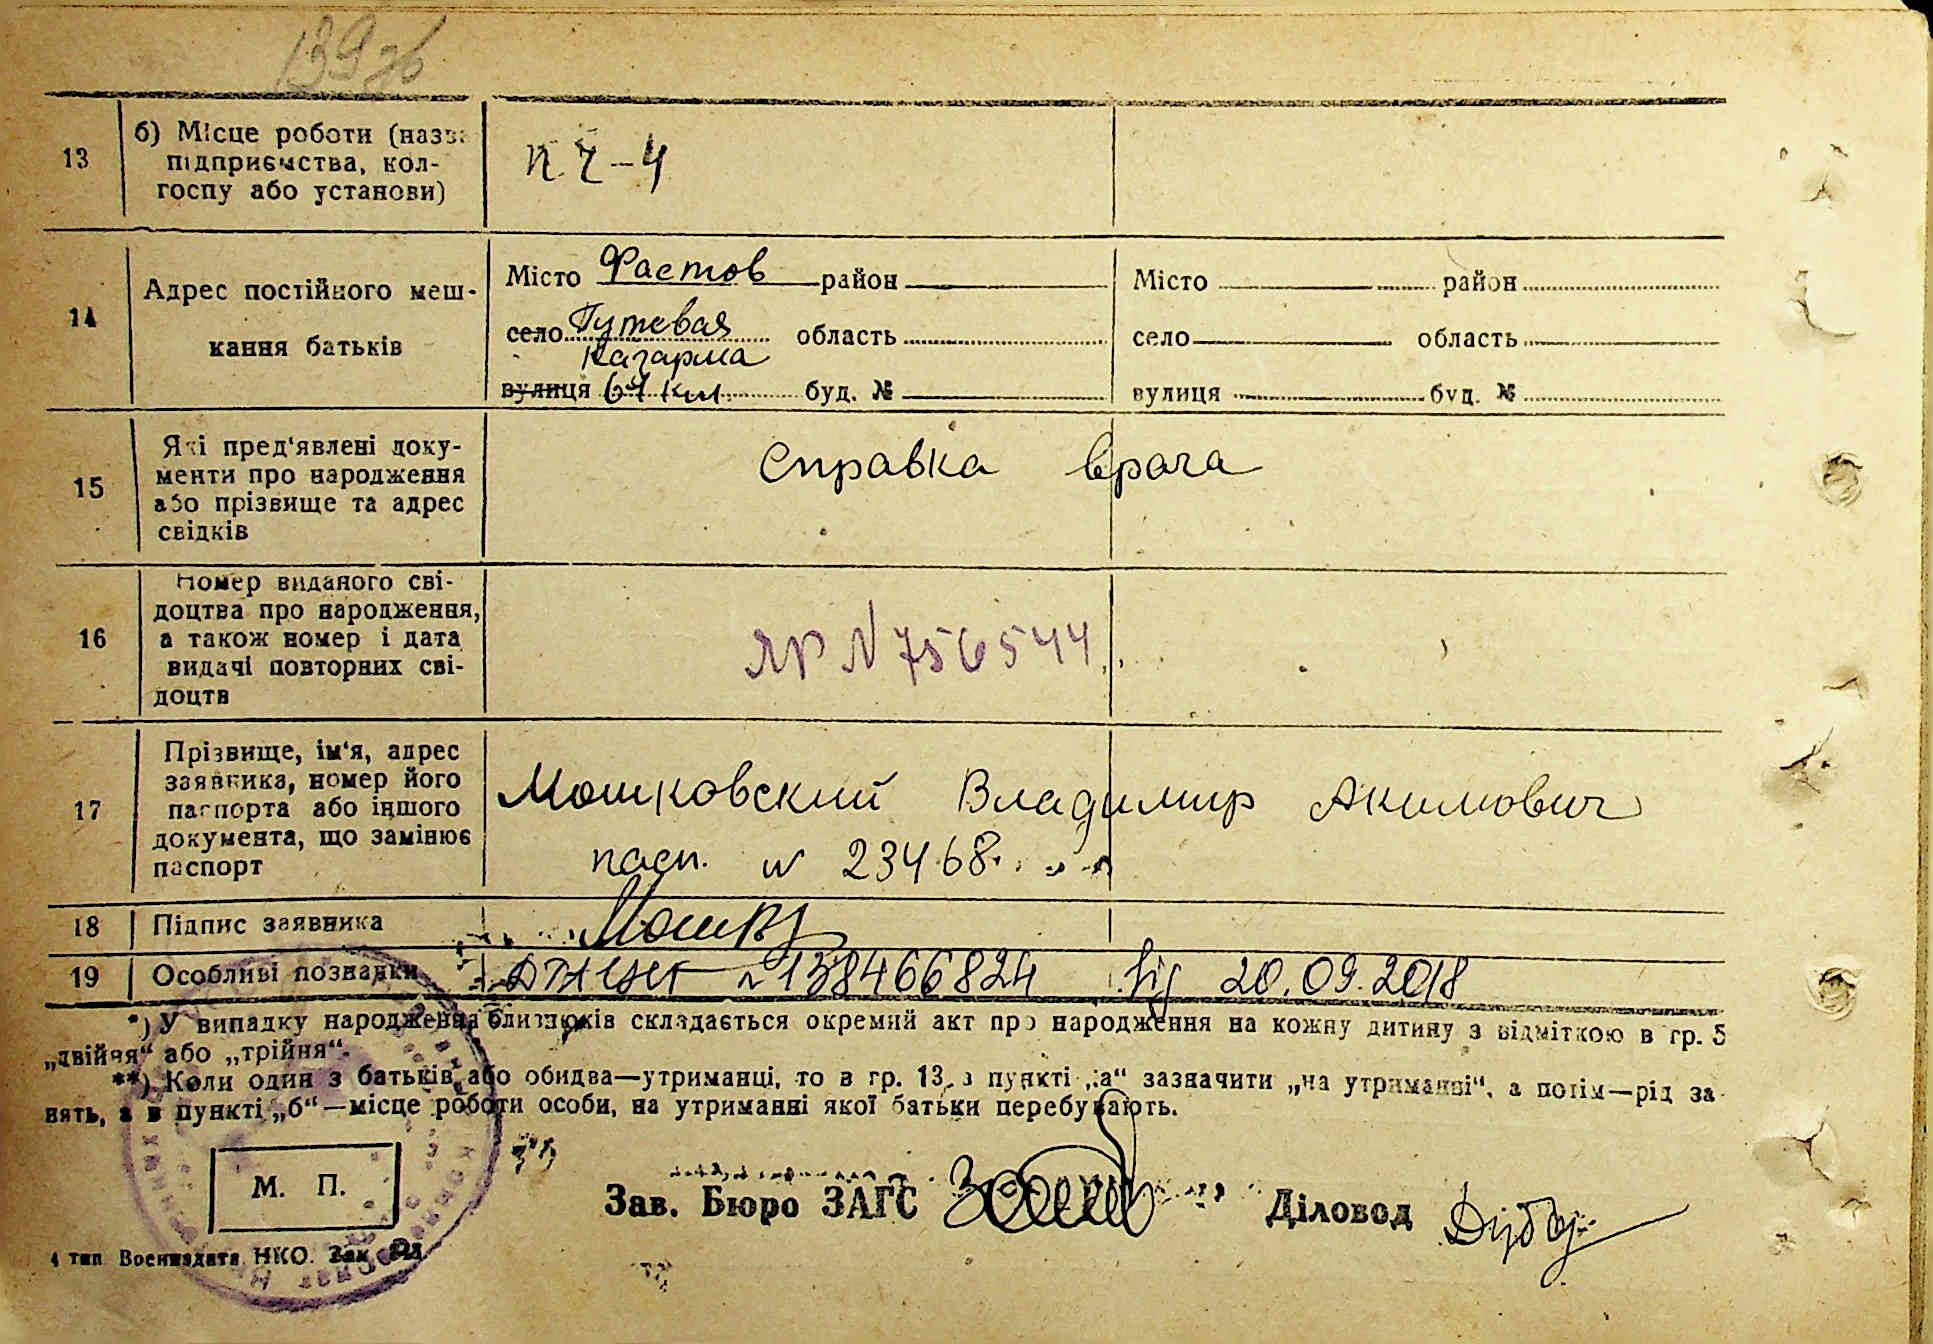 139 зв
13
б) Місце роботи (назва
підприємства, кол-
госпу або установи)
ПЧ-4
14
Адрес постійного меш-
кання батьків
Місто Фастов район
село Путевая область
Казарма
вулиця 64 км буд. №
Місто район
село область
вулиця буд. №
15
Які пред'явлені доку-
менти про народження
або прізвище та адрес
свідків
Справка врача
16
Номер виданого сві-
доцтва про народження,
а також номер і дата
видачі повторних сві-
доцтв
ЯР N 756544
17
Прізвище, ім'я, адрес
заявника, номер його
паспорта або іншого
документа, що замінює
паспорт
Мошковский Владимир Акимович
пасп. N 23468
18
Підпис заявника
19
Особливі познанки
N 138466824 від 20.09.2018
*) У випадку народження близнюків складається окремий акт про народження на кожну дитину з відміткою в гр. 5
„двійня“ або „трійня“.
**) Коли один з батьків або обидва—утриманці, то в гр. 13, в пункті „а“ зазначити „на утриманні“, а потім—рід за-
нять, а в пункті „б“—місце роботи особи, на утриманні якої батьки перебувають.
М. П.
Зав. Бюро ЗАГС
Діловод
4 тип Воениздата НКО. Зак.